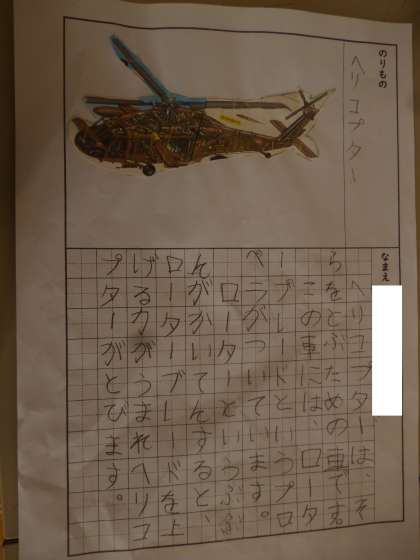 のりもの
ヘリコプター
なまえ
ヘリコプターは、そ
らをとぶための車です。
この車には、ロータ
ーブレードというプロ
ペラがついています。
ローターというぶぶ
んがかいてんすると、
ローターブレードを上
げる力がうまれヘリコ
プターがとびます。